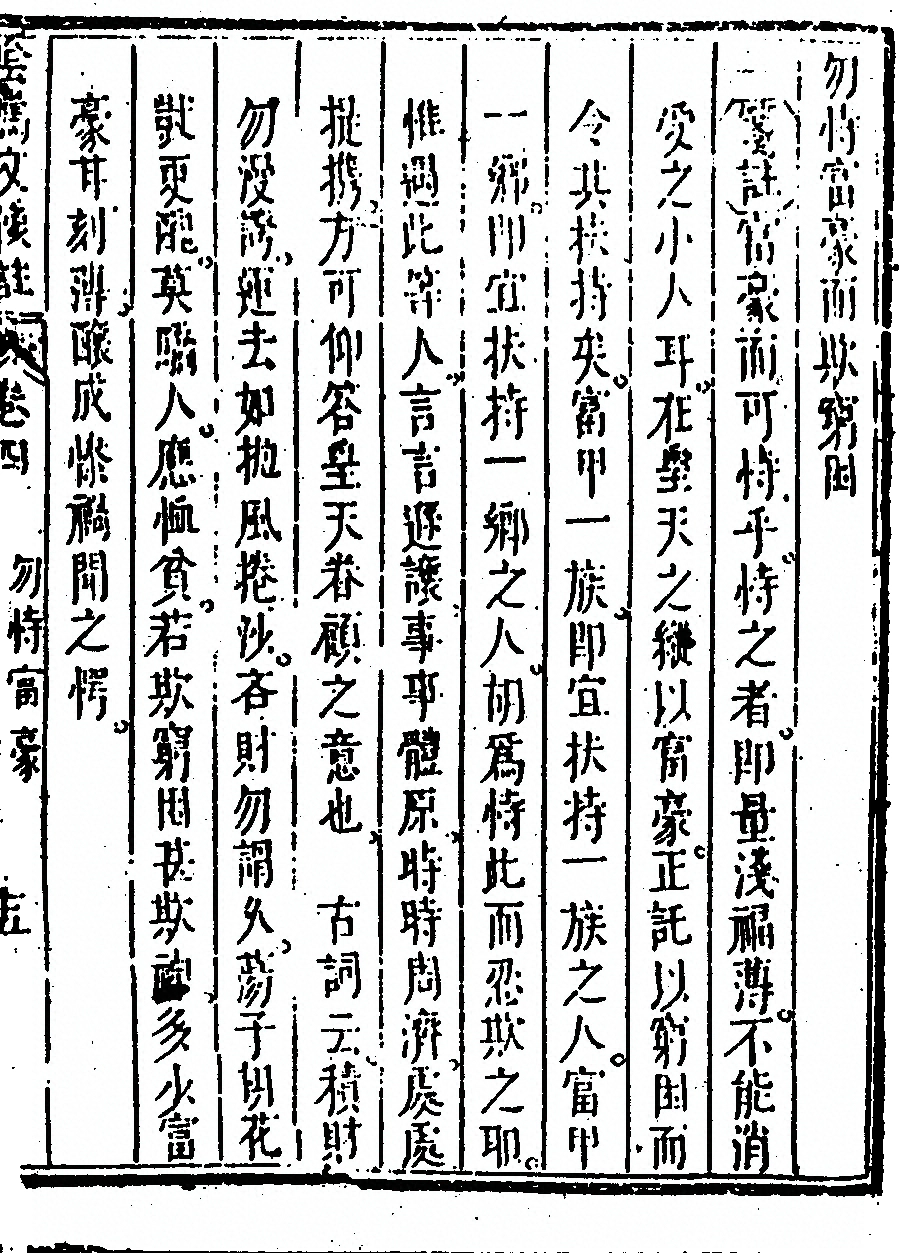 勿恃富豪而欺窮困
箋註富豪而可恃乎恃之者即量淺福薄不能消
受之小人耳在聖天之縱以富豪正託以窮困而
令其扶持矣富甲一族即宜扶持一族之人富甲
一鄉即宜扶持一鄉之人胡爲恃此而忍欺之耶
惟遇此等人言言遜讓事事體原時時周濟處處
提携方可仰答聖天眷顧之意也 古詞云積財
勿漫誇運去如拋風捲沙吝財勿謂久蕩子切花
獃更醜莫驕人應恤貧若欺窮困甚欺 多少富
豪甘刻薄釀成慘禍聞之愕
陰騭文 註 卷四 勿恃富豪 五